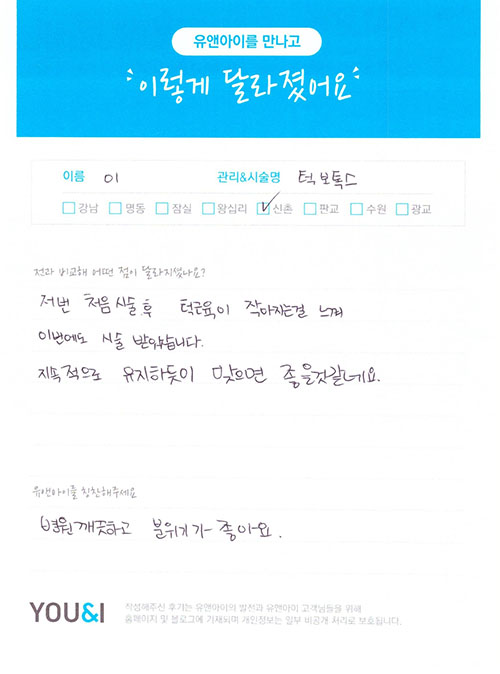 유앤아이를 만나고
이렇게 달라졌어요
이름 이 관리&시술명 턱보톡스
강남 명동 잠실 왕십리 신촌 판교 수원 광교
전과 비교해 어떤 점이 달라지셨나요?
저번 처음 시술 후 턱근육이 작아지는걸 느껴
이번에도 시술 받아봅니다.
지속적으로 유지하듯이 맞으면 좋을것같네요.
유앤아이를 칭찬해주세요
병원 깨끗하고 분위기가 좋아요.
YOU&I
작성해주신 후기는 유앤아이의 발전과 유앤아이 고객님들을 위해
홈페이지 및 블로그에 기재되며 개인정보는 일부 비공개 처리로 보호됩니다.